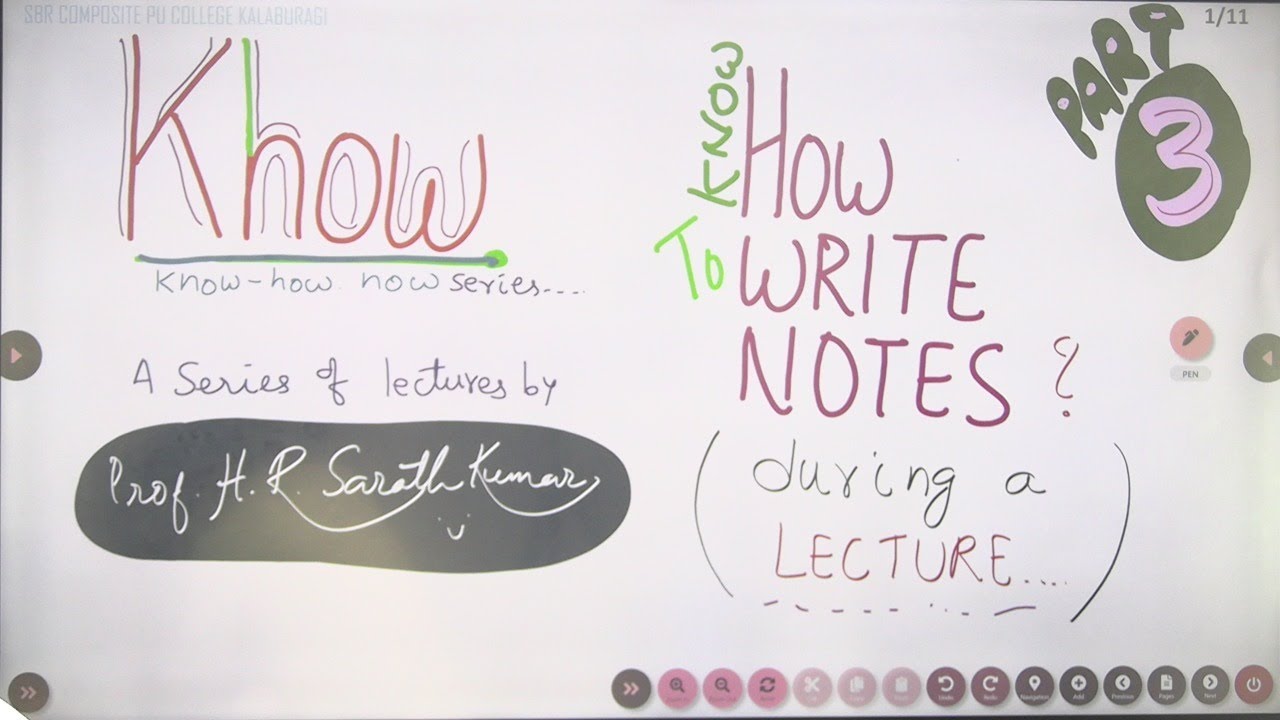 SBR COMPOSITE PU COLLEGE KALABURAGI
1/11
Khow
know-how now series....
A Series of lectures by
Prof. H. R. Sarath Kumar
PART
3
To KNOW
HOW
WRITE
NOTES?
(during a
LECTURE....)
PEN
Undo
Redo
Navigation
Add
Previous
Pages
Next